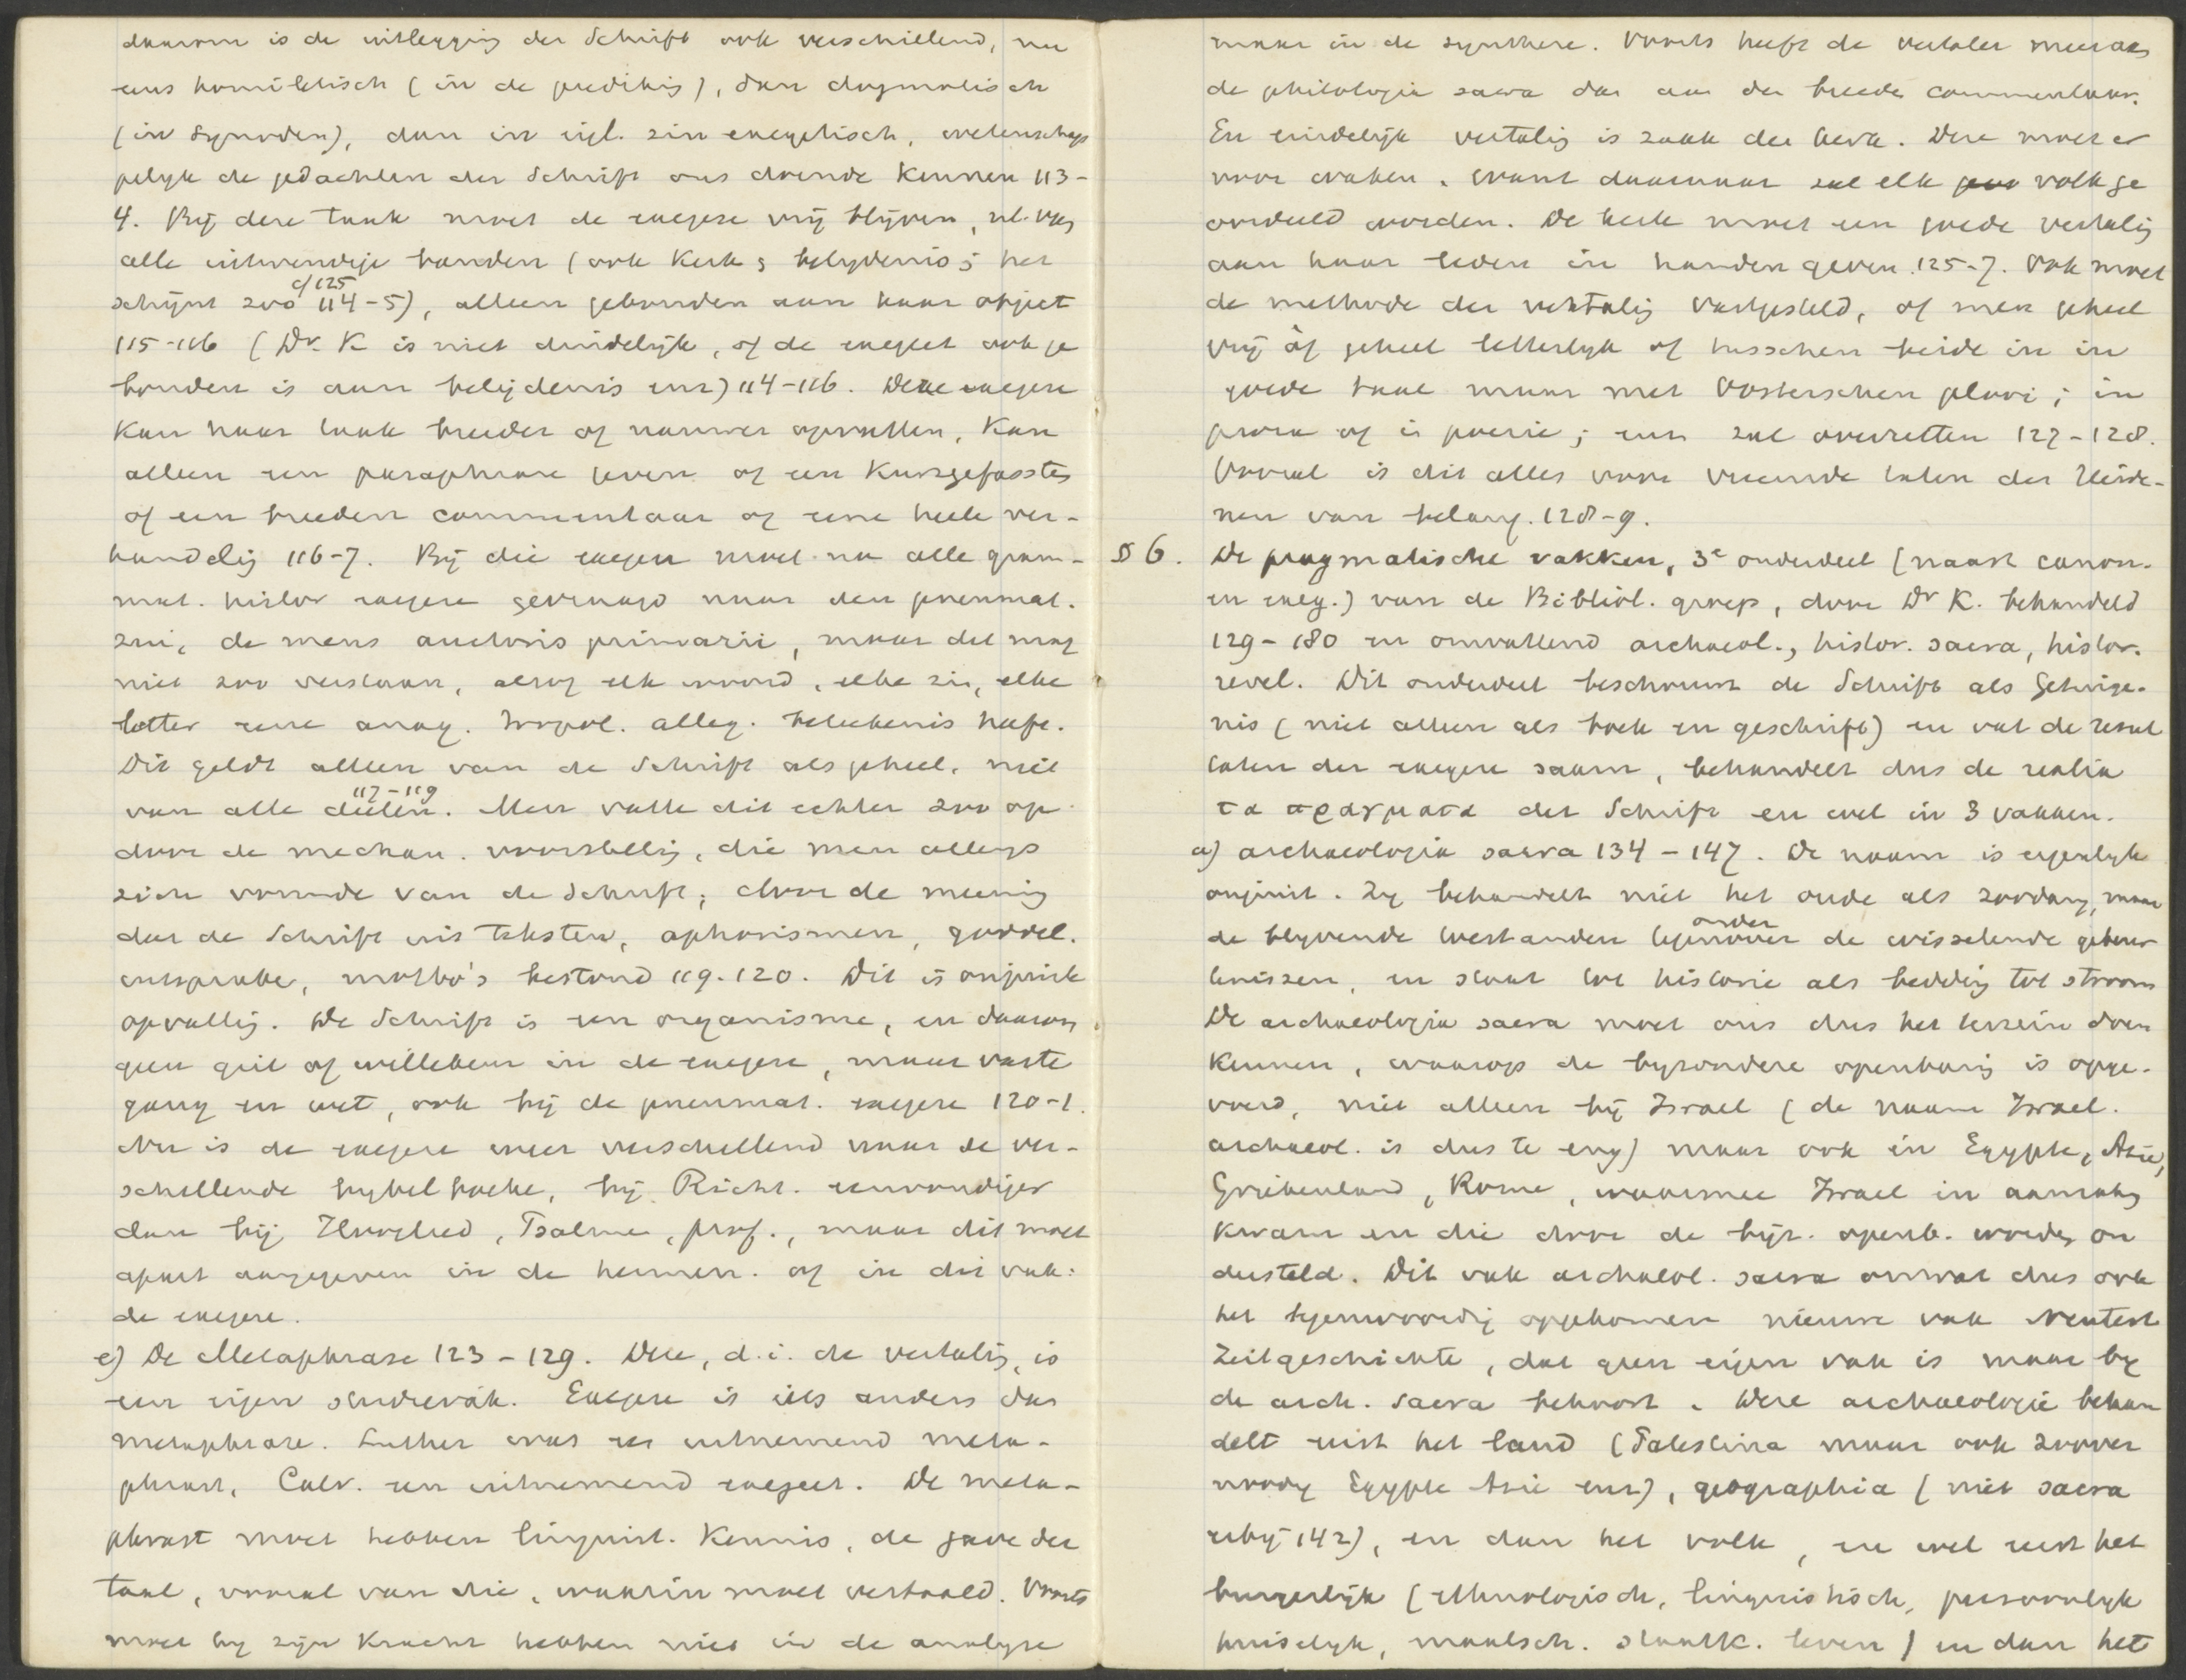 daarom is de uitlegging der Schrift ook verschillend, nu
eens homiletisch (in de prediking), dan dogmatisch
(in Synoden), dan in eigl. zin exegetisch, wetenschap
pelyk de gedachten der Schrift ons doende kennen 113-
4. Bij deze taak moet de exegese vrij blijven, nl. van
alle uitwendige banden (ook Kerk & belydenis; het
schijnt zoo 114-5), alleen gebonden aan haar object
cf 125
115-116 (Dr. K is niet duidelijk, of de exegeet ook ge
bonden is aan belijdenis enz) 114-116. Deze exegese
kan haar taak breeder of nauwer opvatten, kan
alleen een paraphrase geven of een Kurzgefasstes
of een breeden commentaar of eene heele ver-
handelig 116-7. Bij die exegese moet nu alle gram-
mat. histor exegese gevraagd naar den pneumat.
zin, de mens auctoris primarii, maar dat mag
niet zoo verstaan, alsof elk woord, elke zin, elke
letter eene anag. tropol. alleg. beteekenis heeft.
Dit geldt alleen van de Schrift als geheel, niet
van alle deelen. Men vatte dit echter zoo op
117-119
door de mechan. voorstellig, die men allengs
zich vormde van de Schrift; door de meenig
dat de Schrift uit teksten, aphorismen, goddel.
uitspraken, motto's bestond 119.120. Dit is onjuiste
opvattig. De Schrift is een organisme, en daarom
geen gril of willekeur in de exegese, maar vaste
gang en wet, ook bij de pneumat. exegese 120-1.
Nu is de exegese weer verschillend naar de ver-
schillende bybelboeken, bij Richt. eenvoudiger
dan bij Hooglied, Psalmen, prof., maar dit moet
apart aangegeven in de hermen. of in dit vak:
de exegese.
e) De Metaphrase 123-129. Deze, d.i. de vertalig, is
een eigen studievak. Exegese is iets anders dan
metaphrase. Luther was een uitnemend meta-
phrast, Calv. een uitnemend exegeet. De meta-
phrast moet hebben linguist. Kennis, de gave der
taal, vooral van die, waarin moet vertaald. Voorts
moet hy zijn kracht hebben niet in de analyse
maar in de synthese. Voorts heeft de vertaler meer aan
de philologia sacra dan aan den breeden commentaar.
En eindelijk vertalig is zaak der kerk. Deze moet er
voor waken, want daarnaar zal elk volk ge
oordeeld worden. De kerk moet een goede vertalig
aan haar leden in handen geven. 125-7. Ook moet
de methode der vertalig vastgesteld, of men geheel
vrij òf geheel letterlyk of tusschen beide in in
goede taal maar met Oosterschen plooi; in
proza of in poezie; enz zal overzetten 127-128.
Vooral is dit alles voor vreemde talen der Heide-
nen van belang. 128-9.
§ 6. De pragmatische vakken, 3e onderdeel (naast canon.
en exeg.) van de Bibliol. groep, door Dr K. behandeld
129-180 en omvattend archaeol., histor. sacra, histor.
revel. Dit onderdeel beschouwt de Schrift als Getuige-
nis (niet alleen als boek en geschrift) en vat de resul
taten der exegese saam, behandelt dus de realia
τα πραγματα der Schrift en wel in 3 vakken.
a) archaeologia sacra 134-147. De naam is eigenlyk
onjuist. Zy behandelt niet het oude als zoodanig, maar
de blyvende toestanden onder de wisselende gebeur
tenissen, en staat tot historie als bedding tot stroom
De archaeologia sacra moet ons dus het terrein doen
kennen, waarop de byzondere openbarig is opge-
voerd, niet alleen bij Israel (de naam Israel.
archaeol. is dus te eng) maar ook in Egypte, Azië,
Griekenland, Rome, waarmee Israel in aanrakig
kwam en die door de bijz. openb. worden on
dersteld. Dit vak archaeol. sacra omvat dus ook
het tegenwoordig opgekomen nieuwe vak Neutest
Zeitgeschichte, dat geen eigen vak is maar by
de arch. sacra behoort. Deze archaeologie behan
delt eerst het land (Palestina maar ook zoover
noodig Egypte Azië enz), geographia (niet sacra
erbij 142), en dan het volk, en wel eerst het
burgerlijk (ethnologisch, linguistisch, persoonlyk
huiselyk, maatsch. staatk. leven) en dan het